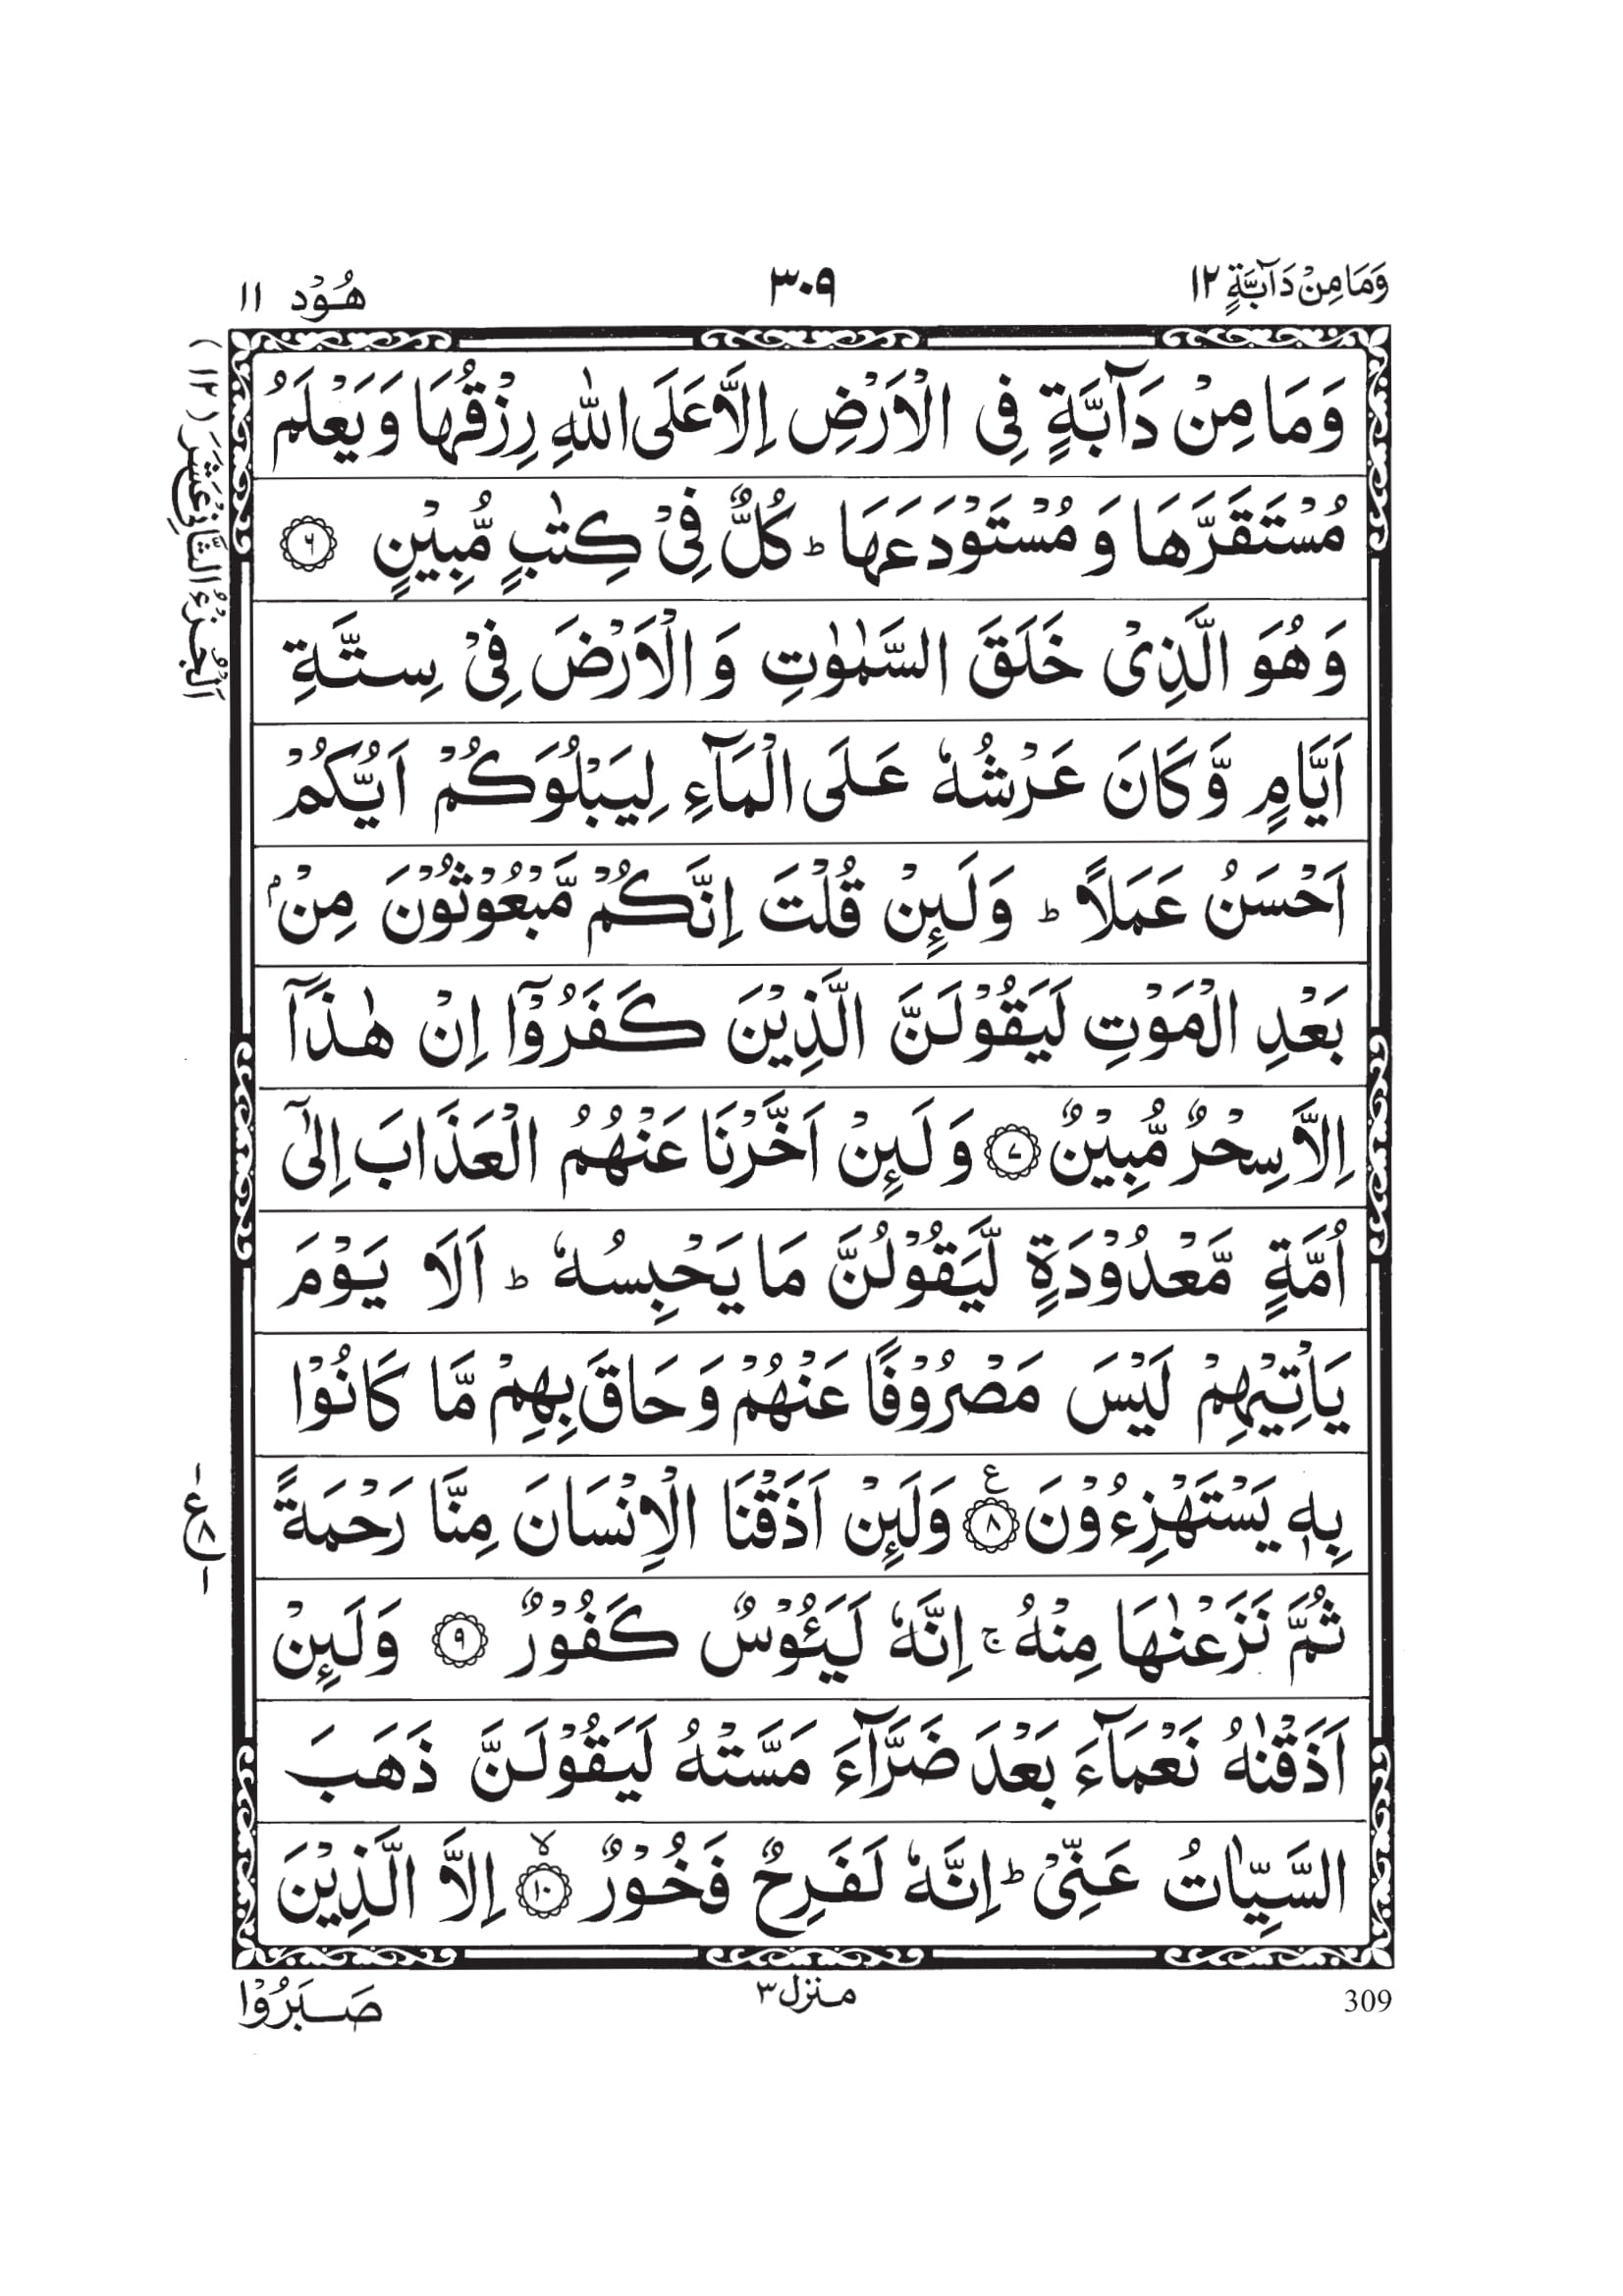 وَمَا مِنْ دَآبَّةٍ ١٢
٣٠٩
هُوْد ١١
وَمَا مِنْ دَآبَّةٍ فِى الْاَرْضِ اِلَّا عَلَى اللّٰهِ رِزْقُهَا وَيَعْلَمُ
مُسْتَقَرَّهَا وَ مُسْتَوْدَعَهَا ؕ كُلٌّ فِىْ كِتٰبٍ مُّبِيْنٍ ۝٦
وَ هُوَ الَّذِىْ خَلَقَ السَّمٰوٰتِ وَ الْاَرْضَ فِىْ سِتَّةِ
اَيَّامٍ وَّ كَانَ عَرْشُهٗ عَلَى الْمَآءِ لِيَبْلُوَكُمْ اَيُّكُمْ
اَحْسَنُ عَمَلًا ؕ وَلَئِنْ قُلْتَ اِنَّكُمْ مَّبْعُوْثُوْنَ مِنْۢ
بَعْدِ الْمَوْتِ لَيَقُوْلَنَّ الَّذِيْنَ كَفَرُوْۤا اِنْ هٰذَاۤ
اِلَّا سِحْرٌ مُّبِيْنٌ ۝٧ وَ لَئِنْ اَخَّرْنَا عَنْهُمُ الْعَذَابَ اِلٰٓى
اُمَّةٍ مَّعْدُوْدَةٍ لَّيَقُوْلُنَّ مَا يَحْبِسُهٗ ؕ اَلَا يَوْمَ
يَاْتِيْهِمْ لَيْسَ مَصْرُوْفًا عَنْهُمْ وَ حَاقَ بِهِمْ مَّا كَانُوْا
بِهٖ يَسْتَهْزِءُوْنَ ۝٨ ع وَلَئِنْ اَذَقْنَا الْاِنْسَانَ مِنَّا رَحْمَةً
ثُمَّ نَزَعْنٰهَا مِنْهُ ۚ اِنَّهٗ لَيَئُوْسٌ كَفُوْرٌ ۝٩ وَلَئِنْ
اَذَقْنٰهُ نَعْمَآءَ بَعْدَ ضَرَّآءَ مَسَّتْهُ لَيَقُوْلَنَّ ذَهَبَ
السَّيِّاٰتُ عَنِّىْ ؕ اِنَّهٗ لَفَرِحٌ فَخُوْرٌ ۝١٠ ۙ اِلَّا الَّذِيْنَ
اَلْجُزْءُ الثَّانِىْ عَشَرَ (١٢)
- ع ٨ -
309
منزل ٣
صَبَرُوْا